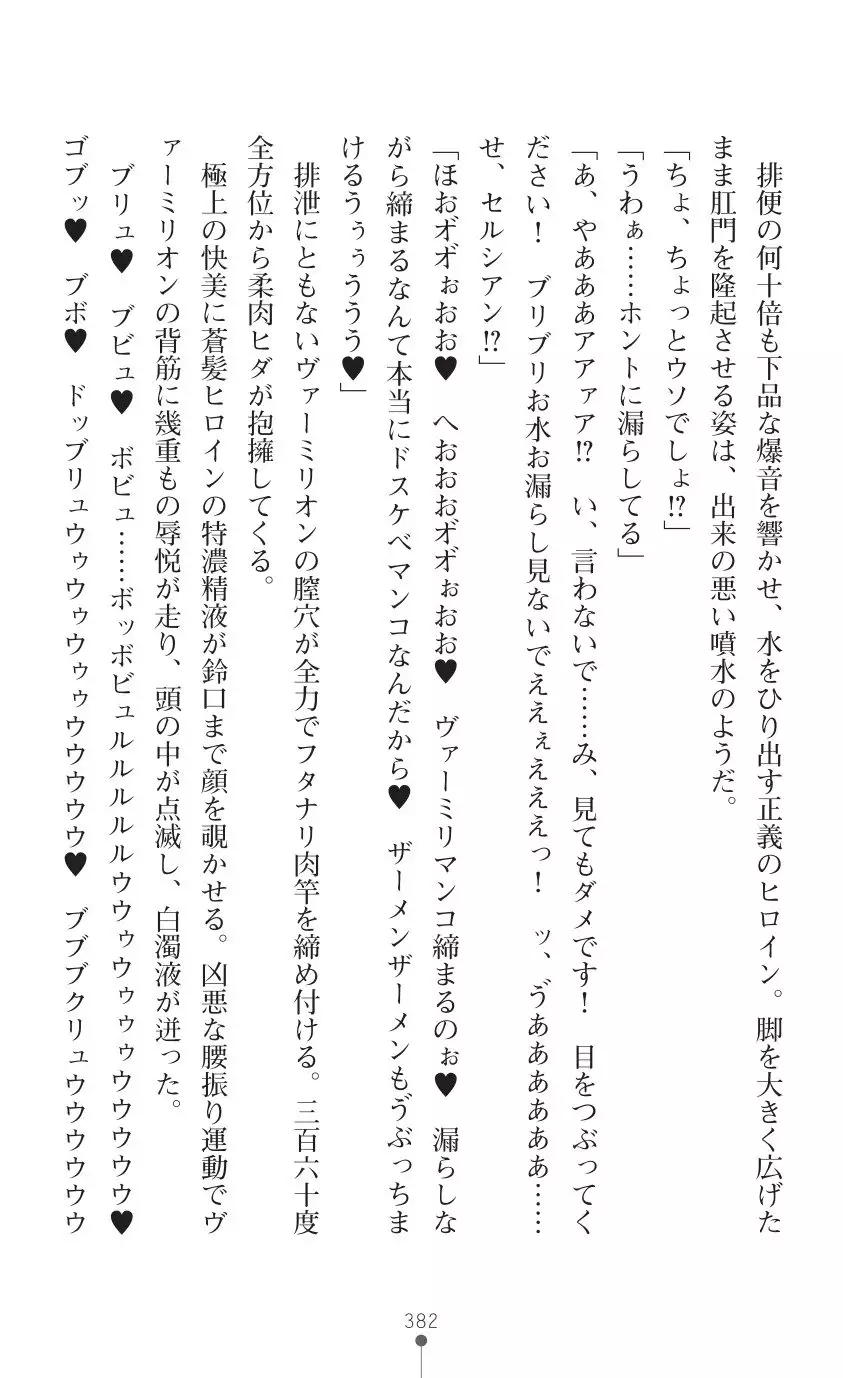 排便の何十倍も下品な爆音を響かせ、水をひり出す正義のヒロイン。脚を大きく広げた
まま肛門を隆起させる姿は、出来の悪い噴水のようだ。
「ちょ、ちょっとウソでしょ!?」
「うわぁ……ホントに漏らしてる」
「あ、やあああアアァア!?　い、言わないで……み、見てもダメです！　目をつぶってく
ださい！　ブリブリお水お漏らし見ないでええぇえええっ！　ッ、ゔああああああ……
せ、セルシアン!?」
「ほおオ゙オ゙ぉおお♥　へおおおオ゙オ゙ぉおお♥　ヴァーミリマンコ締まるのぉ♥　漏らしな
がら締まるなんて本当にドスケベマンコなんだから♥　ザーメンザーメンもゔぶっちま
けるうぅぅううう♥」
排泄にともないヴァーミリオンの膣穴が全力でフタナリ肉竿を締め付ける。三百六十度
全方位から柔肉ヒダが抱擁してくる。
極上の快美に蒼髪ヒロインの特濃精液が鈴口まで顔を覗かせる。凶悪な腰振り運動でヴ
ァーミリオンの背筋に幾重もの辱悦が走り、頭の中が点滅し、白濁液が迸った。
ブリュ♥　ブビュ♥　ボビュ……ボッボビュルルルルルウウゥウゥゥウウウウウ♥
ゴブッ♥　ブボ♥　ドッブリュウゥウゥウゥゥウウウウウ♥　ブブブクリュウウウウウウ
382